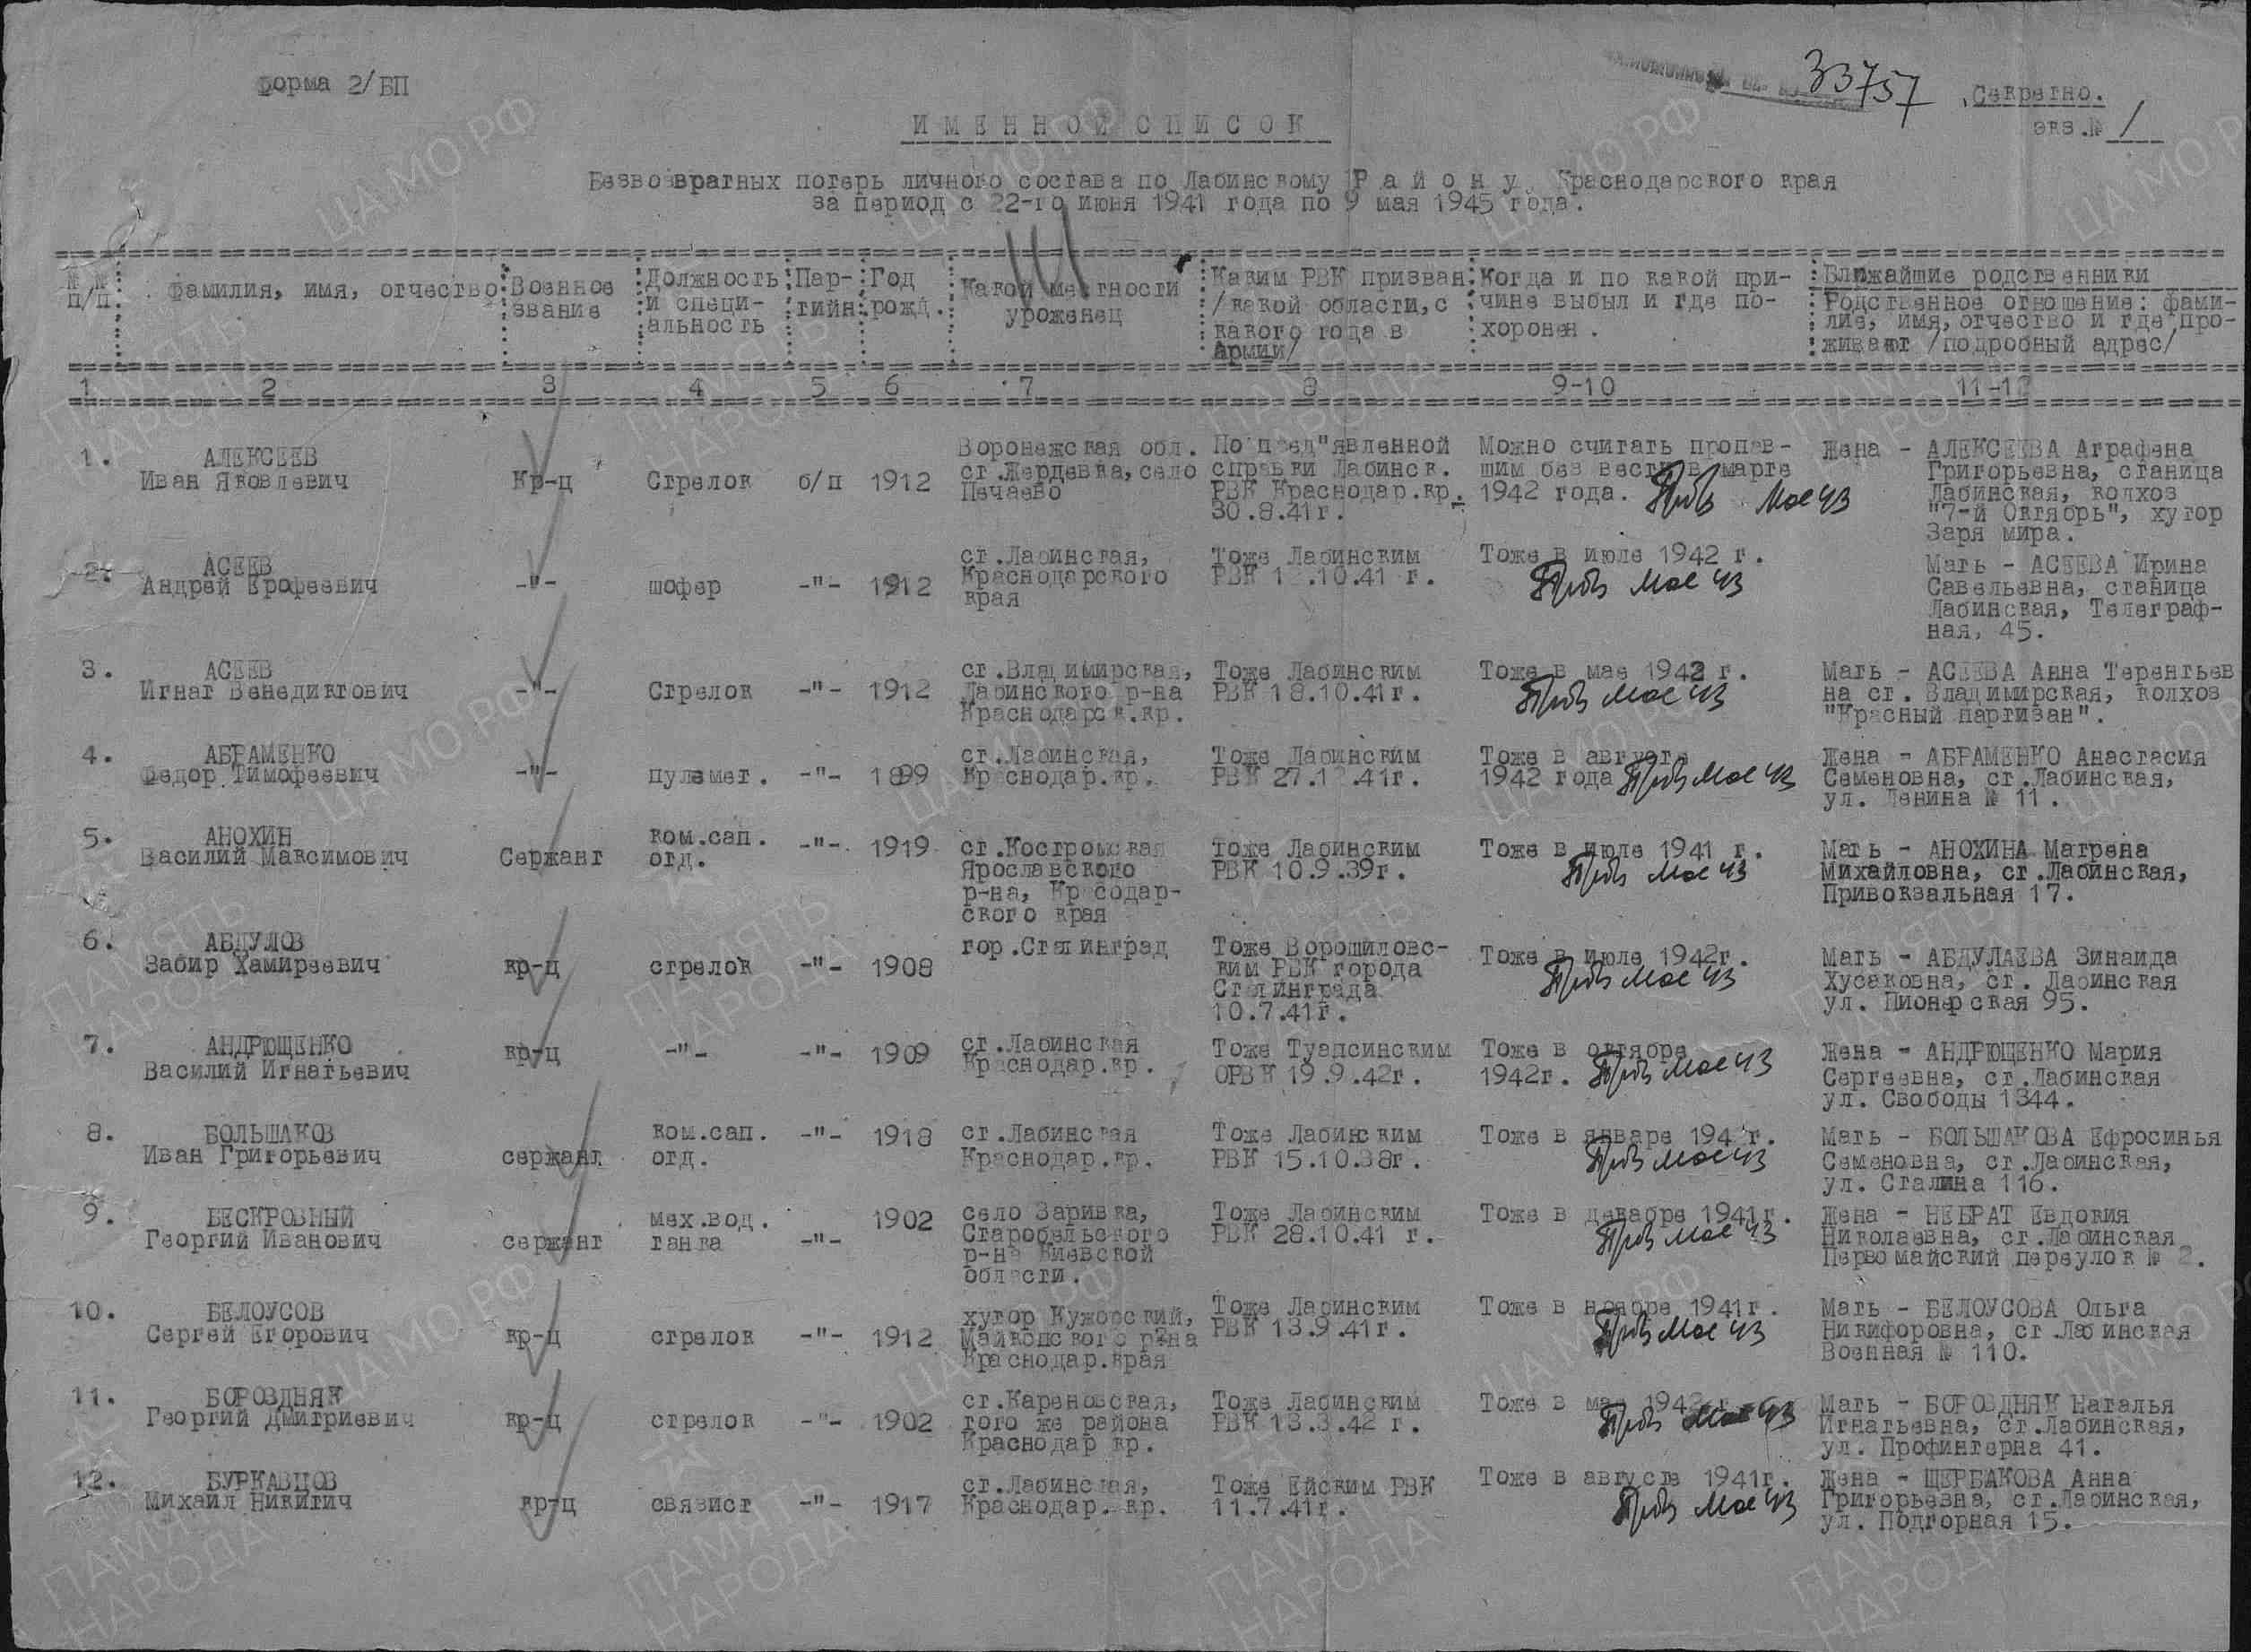 форма 2/БП
33757
Секретно.
экз.№ 1
ИМЕННОЙ СПИСОК
Безвозвратных потерь личного состава по Лабинскому Району, Краснодарского края
за период с 22-го июня 1941 года по 9 мая 1945 года.
№ № п/п. Фамилия, имя, отчество Военное звание Должность и специальность Пар-тийн. Год рожд. Какой местности уроженец Каким РВК призван /какой области, с какого года в Армии/ Когда и по какой при-чине выбыл и где по-хоронен. Ближайшие родственники
Родственное отношение: фами-
лие, имя, отчество и где про-
живают /подробный адрес/
1 2 3 4 5 6 7 8 9-10 11-12
1. АЛЕКСЕЕВ
Иван Яковлевич Кр-ц Стрелок б/п 1912
Воронежская обл.
ст.Жердевка, село
Печаево
По пред"явленной
справки Лабинск.
РВК Краснодар.кр.
30.8.41г.
Можно считать пропав-
шим без вести в марте
1942 года.
Жена - АЛЕКСЕЕВА Аграфена
Григорьевна, станица
Лабинская, колхоз
"7-й Октябрь", хутор
Заря мира.
2. АСЕЕВ
Андрей Ерофеевич -"- шофер -"- 1912
ст.Лабинская,
Краснодарского
края
Тоже Лабинским
РВК .10.41 г.
Тоже в июле 1942 г.
Мать - АСЕЕВА Ирина
Савельевна, станица
Лабинская, Телеграф-
ная, 45.
3. АСЕЕВ
Игнат Венедиктович -"- Стрелок -"- 1912
ст.Владимирская,
Лабинского р-на
Краснодарск.кр.
Тоже Лабинским
РВК 18.10.41г.
Тоже в мае 1942 г.
Мать - АСЕЕВА Анна Терентьев
на ст. Владимирская, колхоз
"Красный партизан".
4. АБРАМЕНКО
Федор Тимофеевич -"- пулемет. -"- 1899
ст.Лабинская,
Краснодар.кр.
Тоже Лабинским
РВК 27.1 .41г.
Тоже в августе
1942 года
Жена - АБРАМЕНКО Анастасия
Семеновна, ст.Лабинская,
ул. Ленина № 11.
5. АНОХИН
Василий Максимович Сержант ком.сап. отд. -"- 1919
ст.Костромская
Ярославского
р-на, Кр содар-
ского края
Тоже Лабинским
РВК 10.9.39г.
Тоже в июле 1941 г.
Мать - АНОХИНА Матрена
Михайловна, ст.Лабинская,
Привокзальная 17.
6. АБДУЛОВ
Забир Хамиреевич кр-ц стрелок -"- 1908
гор.Сталинград
Тоже Ворошиловс-
ким РВК города
Сталинграда
10.7.41г.
Тоже в июле 1942г.
Мать - АБДУЛАЕВА Зинаида
Хусаковна, ст. Лабинская
ул. Пионерская 95.
7. АНДРЮЩЕНКО
Василий Игнатьевич кр-ц -"- -"- 1909
ст.Лабинская
Краснодар.кр.
Тоже Туапсинским
ОРВК 19.9.42г.
Тоже в октябре
1942г.
Жена - АНДРЮЩЕНКО Мария
Сергеевна, ст.Лабинская
ул. Свободы 1344.
8. БОЛЬШАКОВ
Иван Григорьевич сержант ком.сап. отд. -"- 1918
ст.Лабинская
Краснодар.кр.
Тоже Лабинским
РВК 15.10.38г.
Тоже в январе 194 г.
Мать - БОЛЬШАКОВА Ефросинья
Семеновна, ст.Лабинская,
ул. Сталина 116.
9. БЕСКРОВНЫЙ
Георгий Иванович сержант мех.вод. танка -"- 1902
село Заривка,
Старобельского
р-на Киевской
области.
Тоже Лабинским
РВК 28.10.41 г.
Тоже в декабре 1941г.
Жена - НЕБРАТ Евдокия
Николаевна, ст.Лабинская
Первомайский переулок № 2.
10. БЕЛОУСОВ
Сергей Егорович кр-ц стрелок -"- 1912
хутор Кужорский,
Майкопского р-на
Краснодар.края
Тоже Лабинским
РВК 13.9.41г.
Тоже в ноябре 1941г.
Мать - БЕЛОУСОВА Ольга
Никифоровна, ст.Лабинская
Военная № 110.
11. БОРОЗДНЯК
Георгий Дмитриевич кр-ц стрелок -"- 1902
ст.Кареновская,
того же района
Краснодар кр.
Тоже Лабинским
РВК 13.3.42 г.
Тоже в мае 1942 г.
Мать - БОРОЗДНЯК Наталья
Игнатьевна, ст.Лабинская,
ул. Профинтерна 41.
12. БУРКАВЦОВ
Михаил Никитич кр-ц связист -"- 1917
ст.Лабинская,
Краснодар. кр.
Тоже Ейским РВК
11.7.41г.
Тоже в августе 1941г.
Жена - ЩЕРБАКОВА Анна
Григорьевна, ст.Лабинская,
ул. Подгорная 15.